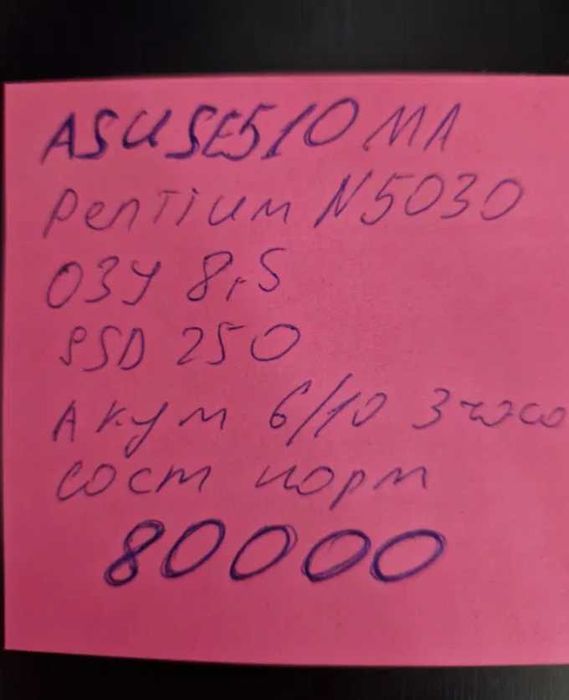 ASUSE510 MA
Pentium N5030
ОЗУ 8гб
SSD 250
Акум 6/10 3 часа
сост норм
80000